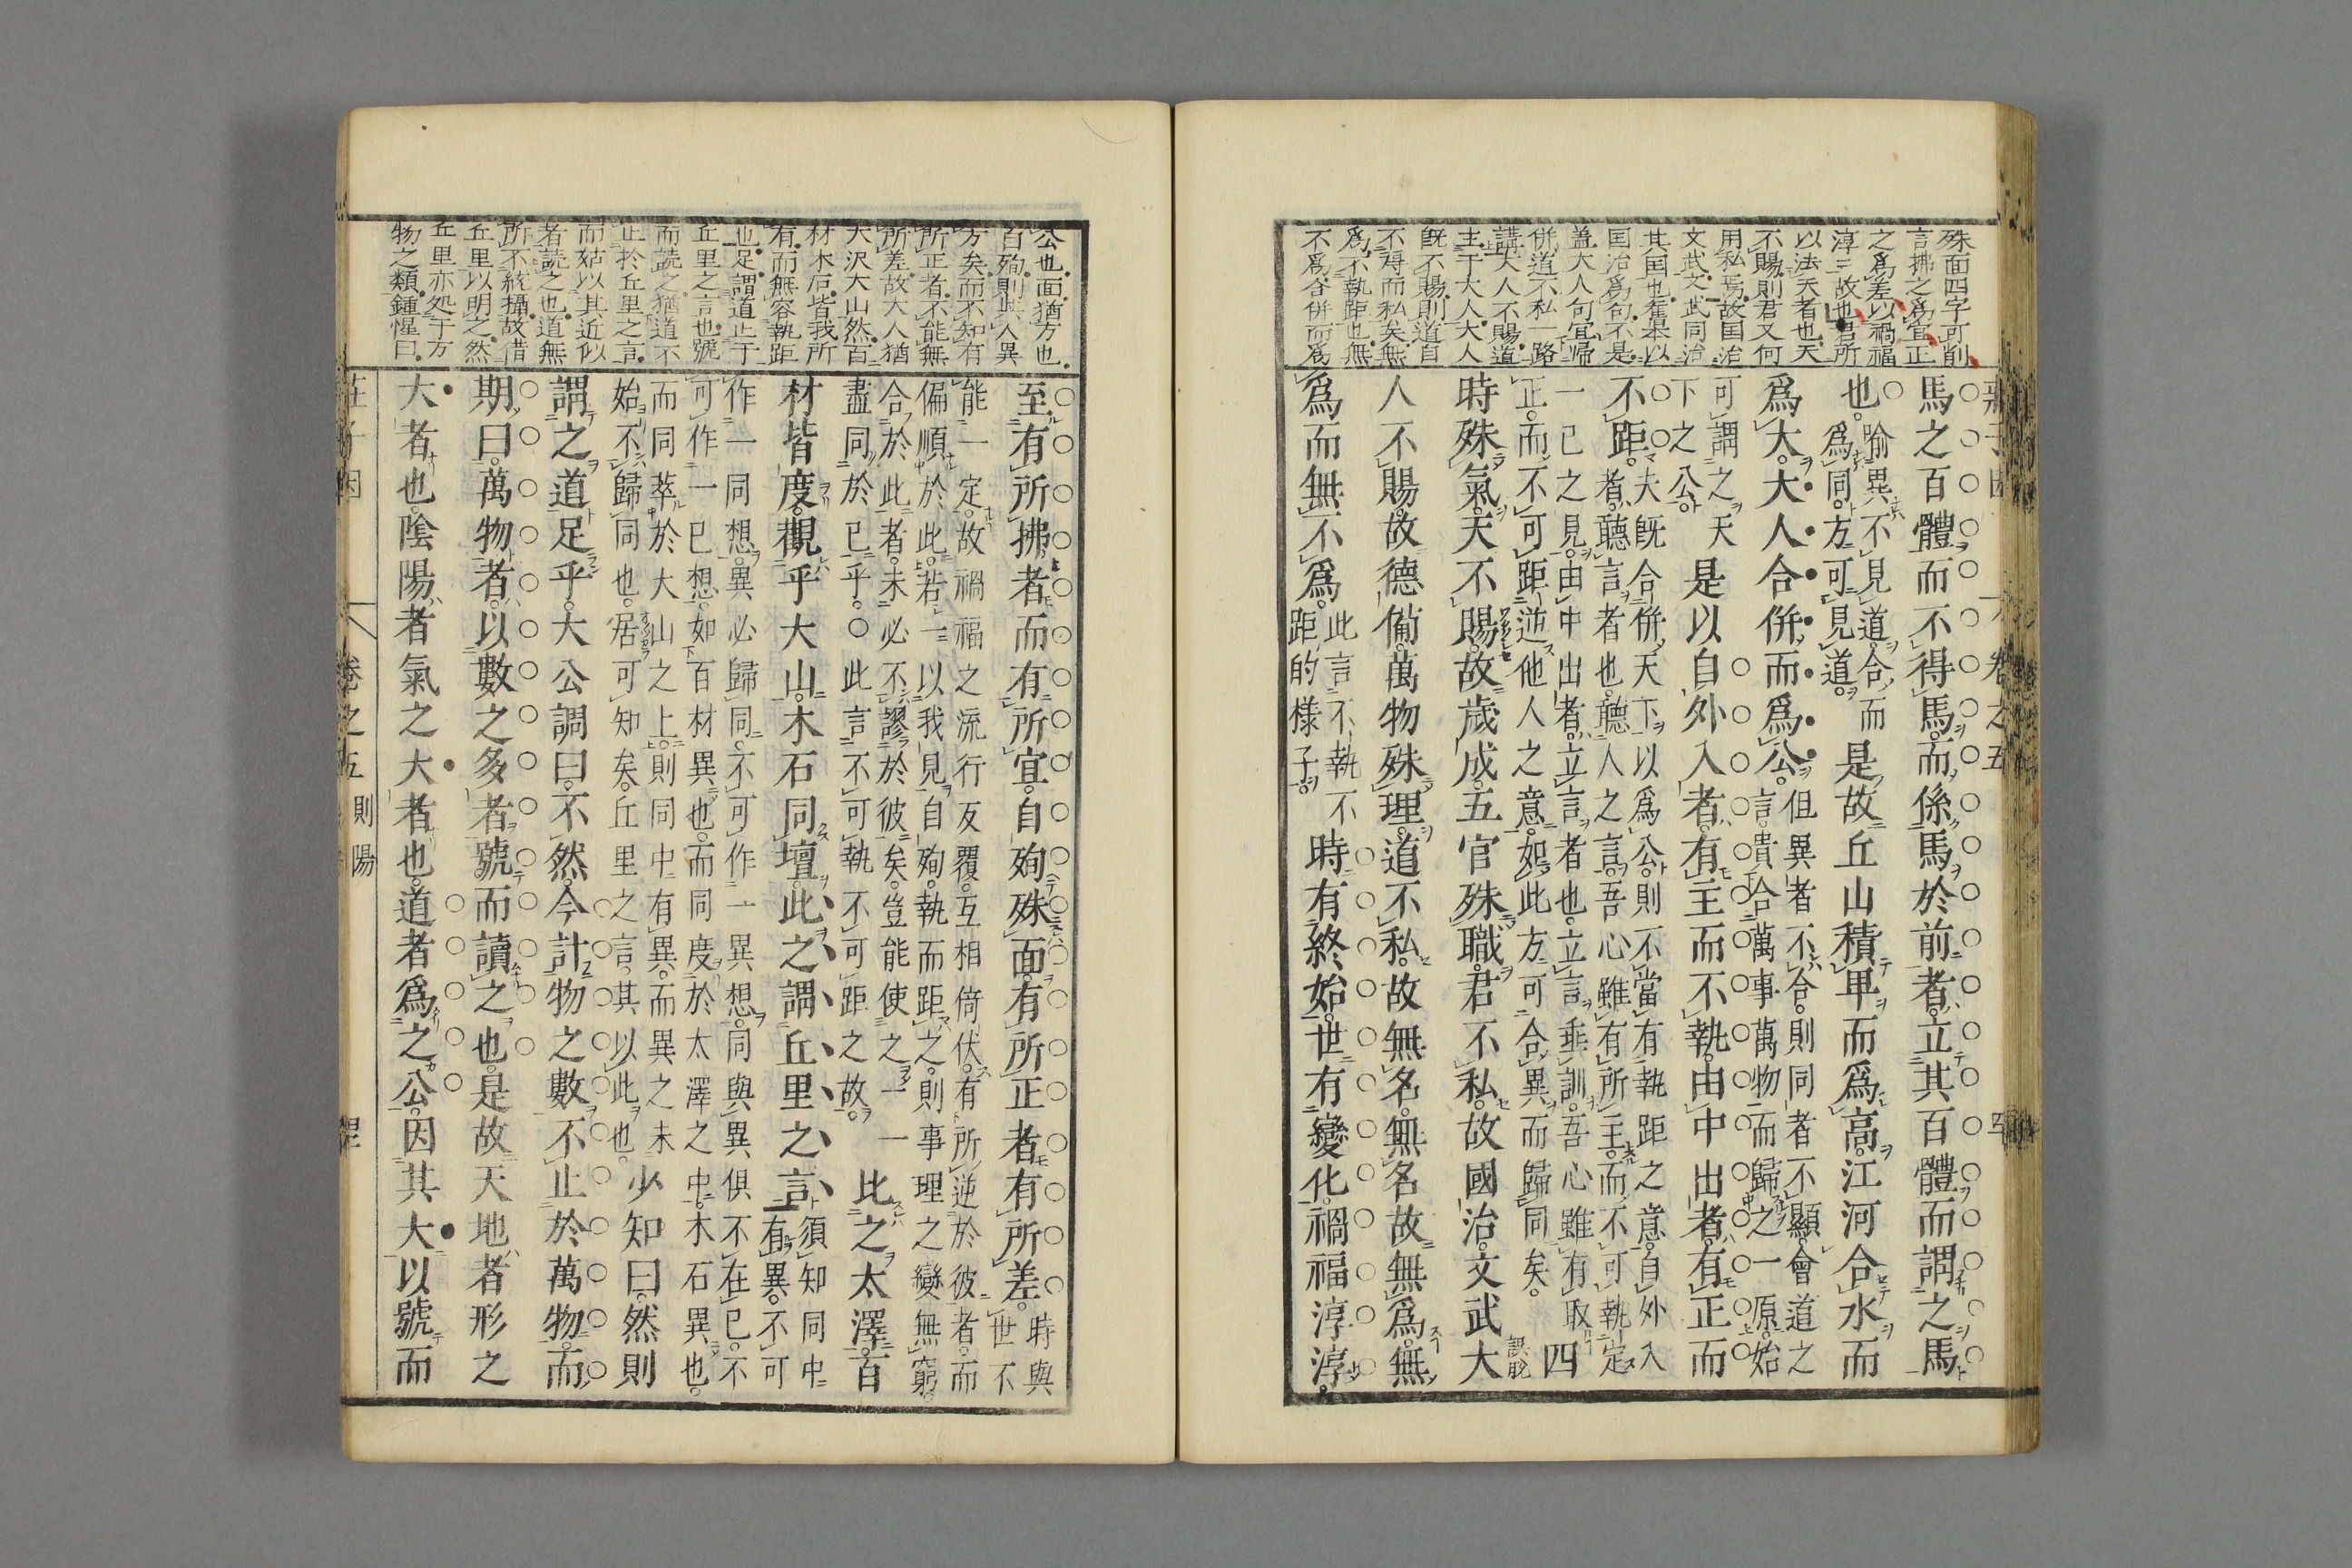 殊面四字可削
言拂之爲宜正
之爲差以禍福
淳〻故也君所
以法天者也天
不賜則君又何
用私焉故国治
文武文武同治
其国也舊本以
国治爲句不是
蓋大人句宜帰
併道不私一路
講大人不賜道
主于大人大人
既不賜則道自
不得而私矣無
爲不執距也無
不爲合併而爲
馬之百體而不得馬。而係馬於前者。立其百體而謂之馬
也。喻異不見道。合而
爲同。方可見道。
是故丘山積卑而爲高。江河合水而
爲大。大人合併而爲公。但異者不合。則同者不顯。會道之
言。貴合萬事萬物而歸之一原。始
可謂之天
下之公。
是以自外入者。有主而不執。由中出者。有正而
不距。夫既合併天下以爲公。則不當有執距之意。自外入
者。聽言者也。聽人之言。吾心雖有所主。而不可執定
一已之見。由中出者。立言者也。立言垂訓。吾心雖有取
正。而不可距逆他人之意。如此方可合異而歸同矣。
四
時殊氣。天不賜。故歲成。五官殊職。君不私。故國治。文武大
人不賜。故德備。萬物殊理。道不私。故無名。無名故無爲。無
爲而無不爲。此言不執不
距的様子。
時有終始。世有變化。禍福淳淳。
公也面猶方也
百殉則此人異
方矣而不知有
所正者不能無
所差故大人猶
大沢大山然百
材木石皆我所
有而無容執距
也足謂道止于
丘里之言也號
而読之猶道不
止於丘里之言
而姑以其近似
者読之也道無
所不統攝故借
丘里以明之然
丘里亦処于方
物之類鍾惺曰
至有所拂者而有所宜。自殉殊面。有所正者有所差。時與
世不
能一定。故禍福之流行反覆。互相倚伏。有所逆於彼者。而
偏順於此。若一以我見自殉。執而距之。則事理之變無窮。
合於此者。未必不謬於彼矣。豈能使之一一
盡同於已乎。〇此言不可執不可距之故。
比之太澤。百
材皆度。觀乎大山。木石同壇。此之謂丘里之言。須知同中
有異。不可
作一同想。異必歸同。不可作一異想。同與異俱不在已。不
可作一已想。如百材異也。而同度於太澤之中。木石異也。
而同萃於大山之上。則同中有異。而異之未
始不歸同也。居可知矣。丘里之言。其以此也。
少知曰。然則
謂之道足乎。大公調曰。不然。今計物之數。不止於萬物。而
期曰。萬物者。以數之多者。號而讀之也。是故天地者形之
大者也。陰陽者氣之大者也。道者爲之公。因其大以號而
卷之五
則陽